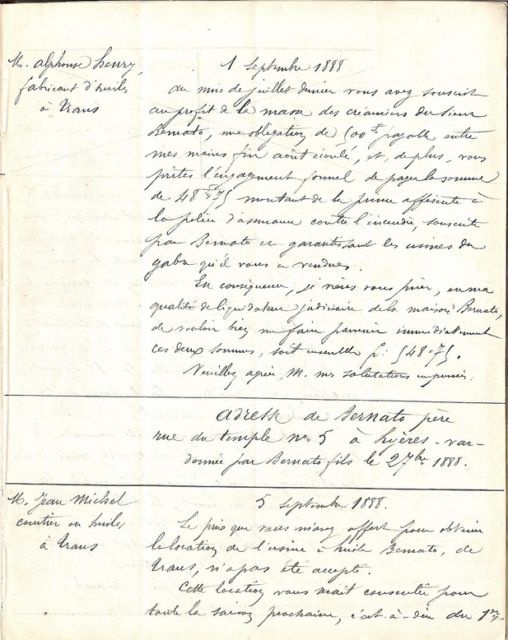 M. Alphonse Henry
fabricant d'huiles
à Trans
1 Septembre 1888
Au mois de juillet dernier vous avez souscrit
au profit de la masse des créanciers du Sieur
Bernato, une obligation de 500 f. payable entre
mes mains fin août écoulé, et, de plus, vous
prîtes l'engagement formel de payer la somme
de 48 f. 75 montant de la prime afférente à
la police d'assurance contre l'incendie, souscrite
par Bernato et garantissant les usines du
qu'il vous a vendues.
En conséquence, je viens vous prier, en ma
qualité de liquidateur judiciaire de la maison Bernato,
de vouloir bien me faire parvenir immédiatement
ces deux sommes, soit ensemble f. 548.75.
Veuillez agréer, M. mes salutations empressées.
Adresse de Bernato père
rue du temple no 5 à Hyères - var -
donnée par Bernato fils le 2 7bre 1888.
M. Jean Michel
courtier en huiles
à Trans
5 Septembre 1888.
Le prix que vous m'avez offert pour obtenir
la location de l'usine à huile Bernato, de
Trans, n'a pas été accepté.
Cette location vous était consentie pour
toute la saison prochaine, c'est-à-dire du 1er